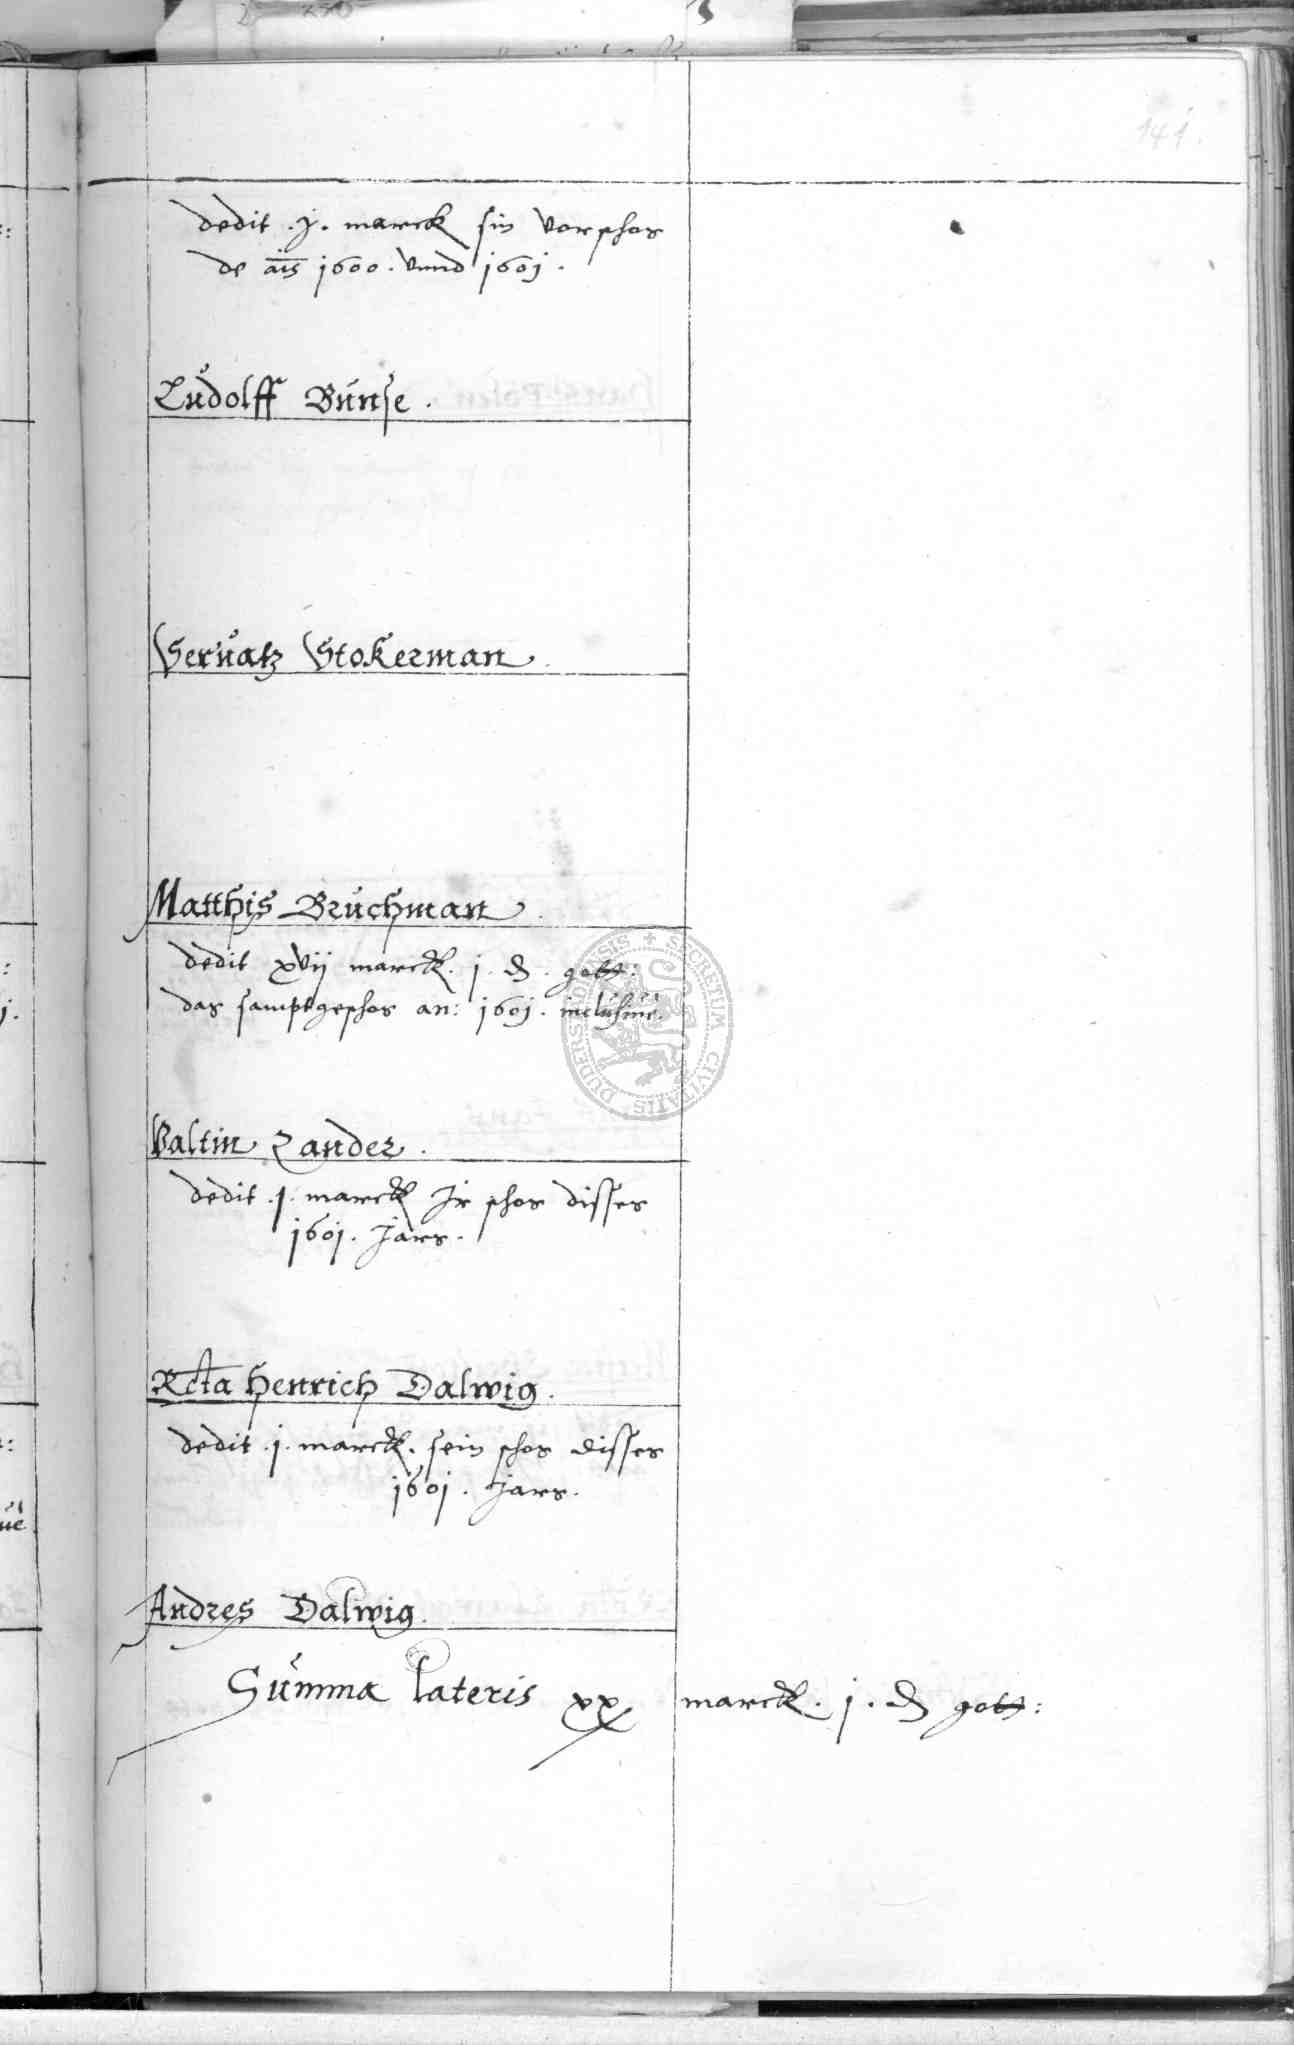 141.
dedit . j . marck sin vorschos
de ais 1600 . vnnd 1601 .
Ludolff Bunse .
Seruatz Stokerman .
Matthis Bruchman .
dedit xvij marck . j . d . gott:
das samptgeschos an: 1601 . inclusiue .
Valtin Zander .
dedit . j . marck Jr schos disses
1601 . Jars .
Rcta Henrich Dalwig .
dedit . j . marck . sein schos disses
1601 . Jars .
Andres Dalwig .
Summa lateris xx marck . j . d gott:
SECRETUM CIVITATIS DUDERSTADIENSIS